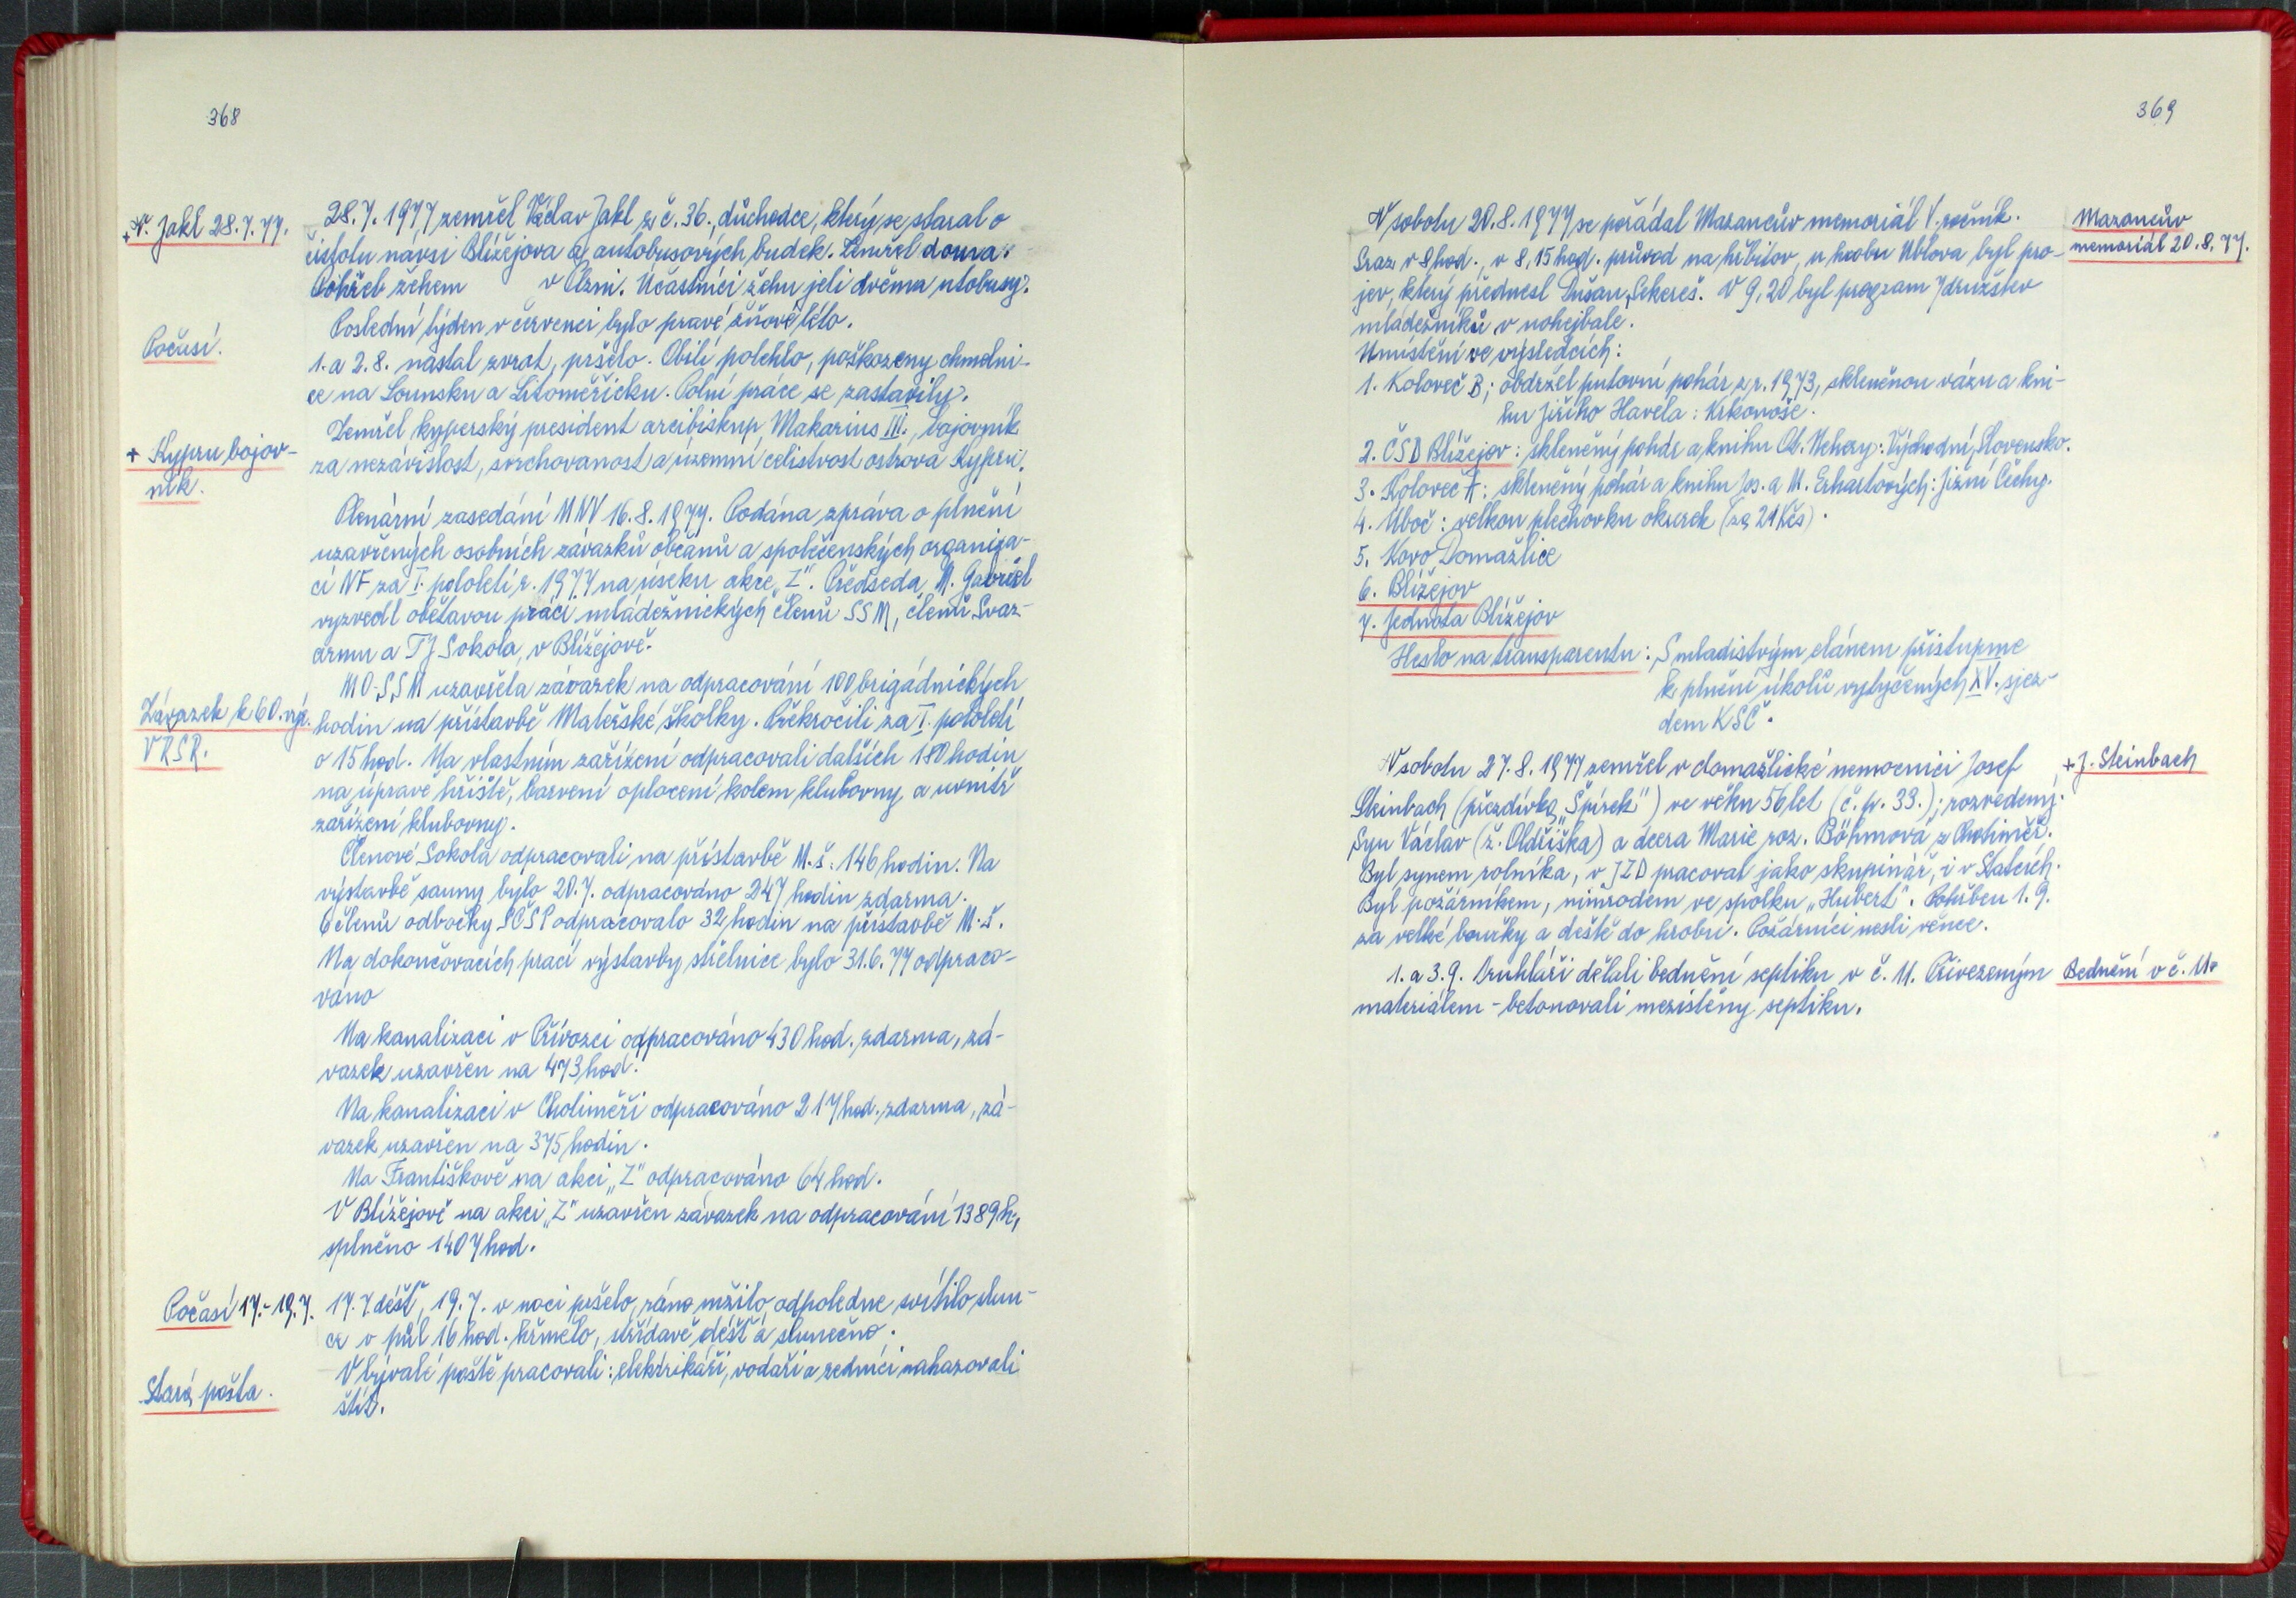 368
+ V. Jakl 28.7.77.
28.7.1977 zemřel Václav Jakl z č. 36., důchodce, který se staral o
čistotu návsi Blížejova a autobusových budek. Zemřel doma.
Pohřeb žehem v Plzni. Účastníci žehu jeli dvěma utobusy.
Počasí.
Poslední týden v červenci bylo pravé žňové léto.
1. a 2.8. nastal zvrat, pršelo. Obilí polehlo, poškozeny chmelni-
ce na Lounsku a Litoměřicku. Polní práce se zastavily.
+ Kypru bojov-
ník.
Zemřel kyperský president arcibiskup Makarius III., bojovník
za nezávislost, svrchovanost a územní celistvost ostrova Kypru.
Plenární zasedání MNV 16.8.1977. Podána zpráva o plnění
uzavřených osobních závazků občanů a společenských organiza-
cí NF za I. pololetí r. 1977 na úseku akce „Z“. Předseda M. Gabriel
vyzvedl obětavou práci mládežnických členů SSM, členů Svaz-
armu a TJ Sokola v Blížejově.
Závazek k 60. výr.
VŘSR.
MO-SSM uzavřela závazek na odpracování 100 brigádnických
hodin na přístavbě Mateřské školky. Překročili za I. pololetí
o 15 hod. Na vlastním zařízení odpracovali dalších 180 hodin
na úpravě hřiště, barvení oplocení kolem klubovny a uvnitř
zařízení klubovny.
Členové Sokola odpracovali na přístavbě M.š. 146 hodin. Na
výstavbě sauny bylo 20.7. odpracováno 247 hodin zdarma.
6 členů odbočky SČSP odpracovalo 32 hodin na přístavbě M.Š.
Na dokončovacích prací výstavby střelnice bylo 31.6.77 odpraco-
váno
Na kanalizaci v Přívozci odpracováno 430 hod. zdarma, zá-
vazek uzavřen na 473 hod.
Na kanalizaci v Choliměři odpracováno 217 hod. zdarma, zá-
vazek uzavřen na 375 hodin.
Na Františkově na akci „Z“ odpracováno 64 hod.
V Blížejově na akci „Z“ uzavřen závazek na odpracování 1389 h,
splněno 1407 hod.
Počasí 17.-19.7.
17.7. déšť, 19.7. v noci pršelo, ráno mžilo, odpoledne svítilo slun-
ce v půl 16 hod. hřmělo, střídavě déšť a slunečno.
Stará pošta.
V bývalé poště pracovali: elektrikáři, vodaři a zedníci nahazovali
štít.
369
Mazancův
memoriál 20.8.77.
V sobotu 20.8.1977 se pořádal Mazancův memoriál V. ročník.
Sraz v 8 hod., v 8,15 hod. průvod na hřbitov, u hrobu Ublova byl pro-
jev, který přednesl Dušan Sekereš. V 9,20 byl program 7 družstev
mládežníků v nohejbale.
Umístění ve výsledcích:
1. Koloveč B; obdržel putovní pohár z r. 1973, skleněnou vázu a kni-
hu Jiřího Havela: Krkonoše.
2. ČSD Blížejov: skleněný pohár a knihu Ot. Nehery: Východní Slovensko.
3. Koloveč A: skleněný pohár a knihu Jos. a M. Erhartových: Jižní Čechy.
4. Úboč: velkou plechovku okurek (za 21 Kčs).
5. Kovo Domažlice
6. Blížejov
7. Jednota Blížejov
Heslo na transparentu: S mladistvým elánem přistupme
k plnění úkolů vytyčených XV. sjez-
dem KSČ.
+ J. Steinbach
V sobotu 27.8.1977 zemřel v domažlické nemocnici Josef
Steinbach (přezdívka „Špírek“) ve věku 56 let (č.p. 33.); rozvedený.
Syn Václav (ž. Oldřiška) a dcera Marie roz. Böhmová z Choliměř.
Byl synem rolníka, v JZD pracoval jako skupinář, i v Statcích.
Byl požárníkem, nimrodem ve spolku „Hubert“. Pohřben 1.9.
za velké bouřky a deště do hrobu. Požárníci nesli věnce.
Bednění v č. 11.
1. a 3.9. truhláři dělali bednění septiku v č. 11. Přivezeným
materiálem - betonovali mezistěny septiku.